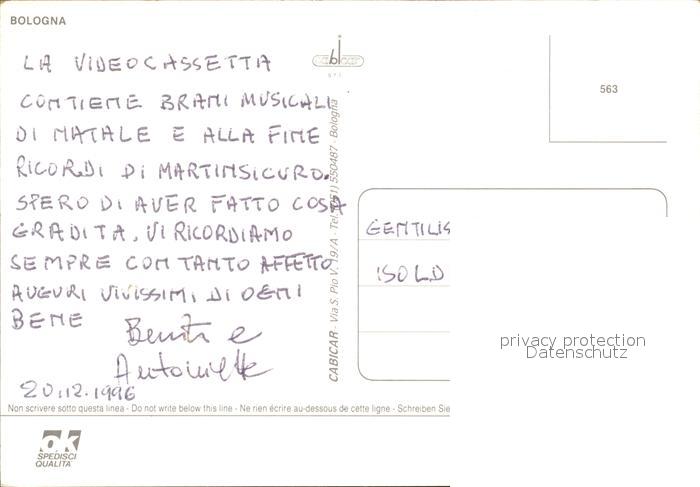 BOLOGNA
LA VIDEOCASSETTA
CONTIENE BRANI MUSICALI
DI NATALE E ALLA FINE
RICORDI DI MARTINSICURO.
SPERO DI AVER FATTO COSA
GRADITA, VI RICORDIAMO
SEMPRE CON TANTO AFFETTO
AUGURI VIVISSIMI DI OGNI
BENE
e
20.12.1996
Non scrivere sotto questa linea - Do not write below this line - Ne rien écrire au-dessous de cette ligne - Schreiben Sie
ok
SPEDISCI
QUALITA'
CABICAR - Via S. Pio V, 19/A - Tel. (051) 550487 - Bologna
563
GENTILIS
ISOLD
privacy protection
Datenschutz